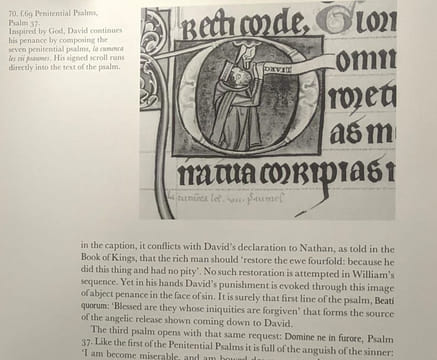 70. f.69 Penitential Psalms,
Psalm 37.
Inspired by God, David continues
his penance by composing the
seven penitential psalms, la cumence
les vii psaumes. His signed scroll runs
directly into the text of the psalm.
Recti corde, Glori
DAVIT
omin
as m
in the caption, it conflicts with David's declaration to Nathan, as told in the
Book of Kings, that the rich man should 'restore the ewe fourfold: because he
did this thing and had no pity'. No such restoration is attempted in William's
sequence. Yet in his hands David's punishment is evoked through this image
of abject penance in the face of sin. It is surely that first line of the psalm, Beati
quorum: 'Blessed are they whose iniquities are forgiven' that forms the source
of the angelic release shown coming down to David.
The third psalm opens with that same request: Domine ne in furore, Psalm
37. Like the first of the Penitential Psalms it is full of the anguish of the sinner:
'I am become miserable, and am bowed